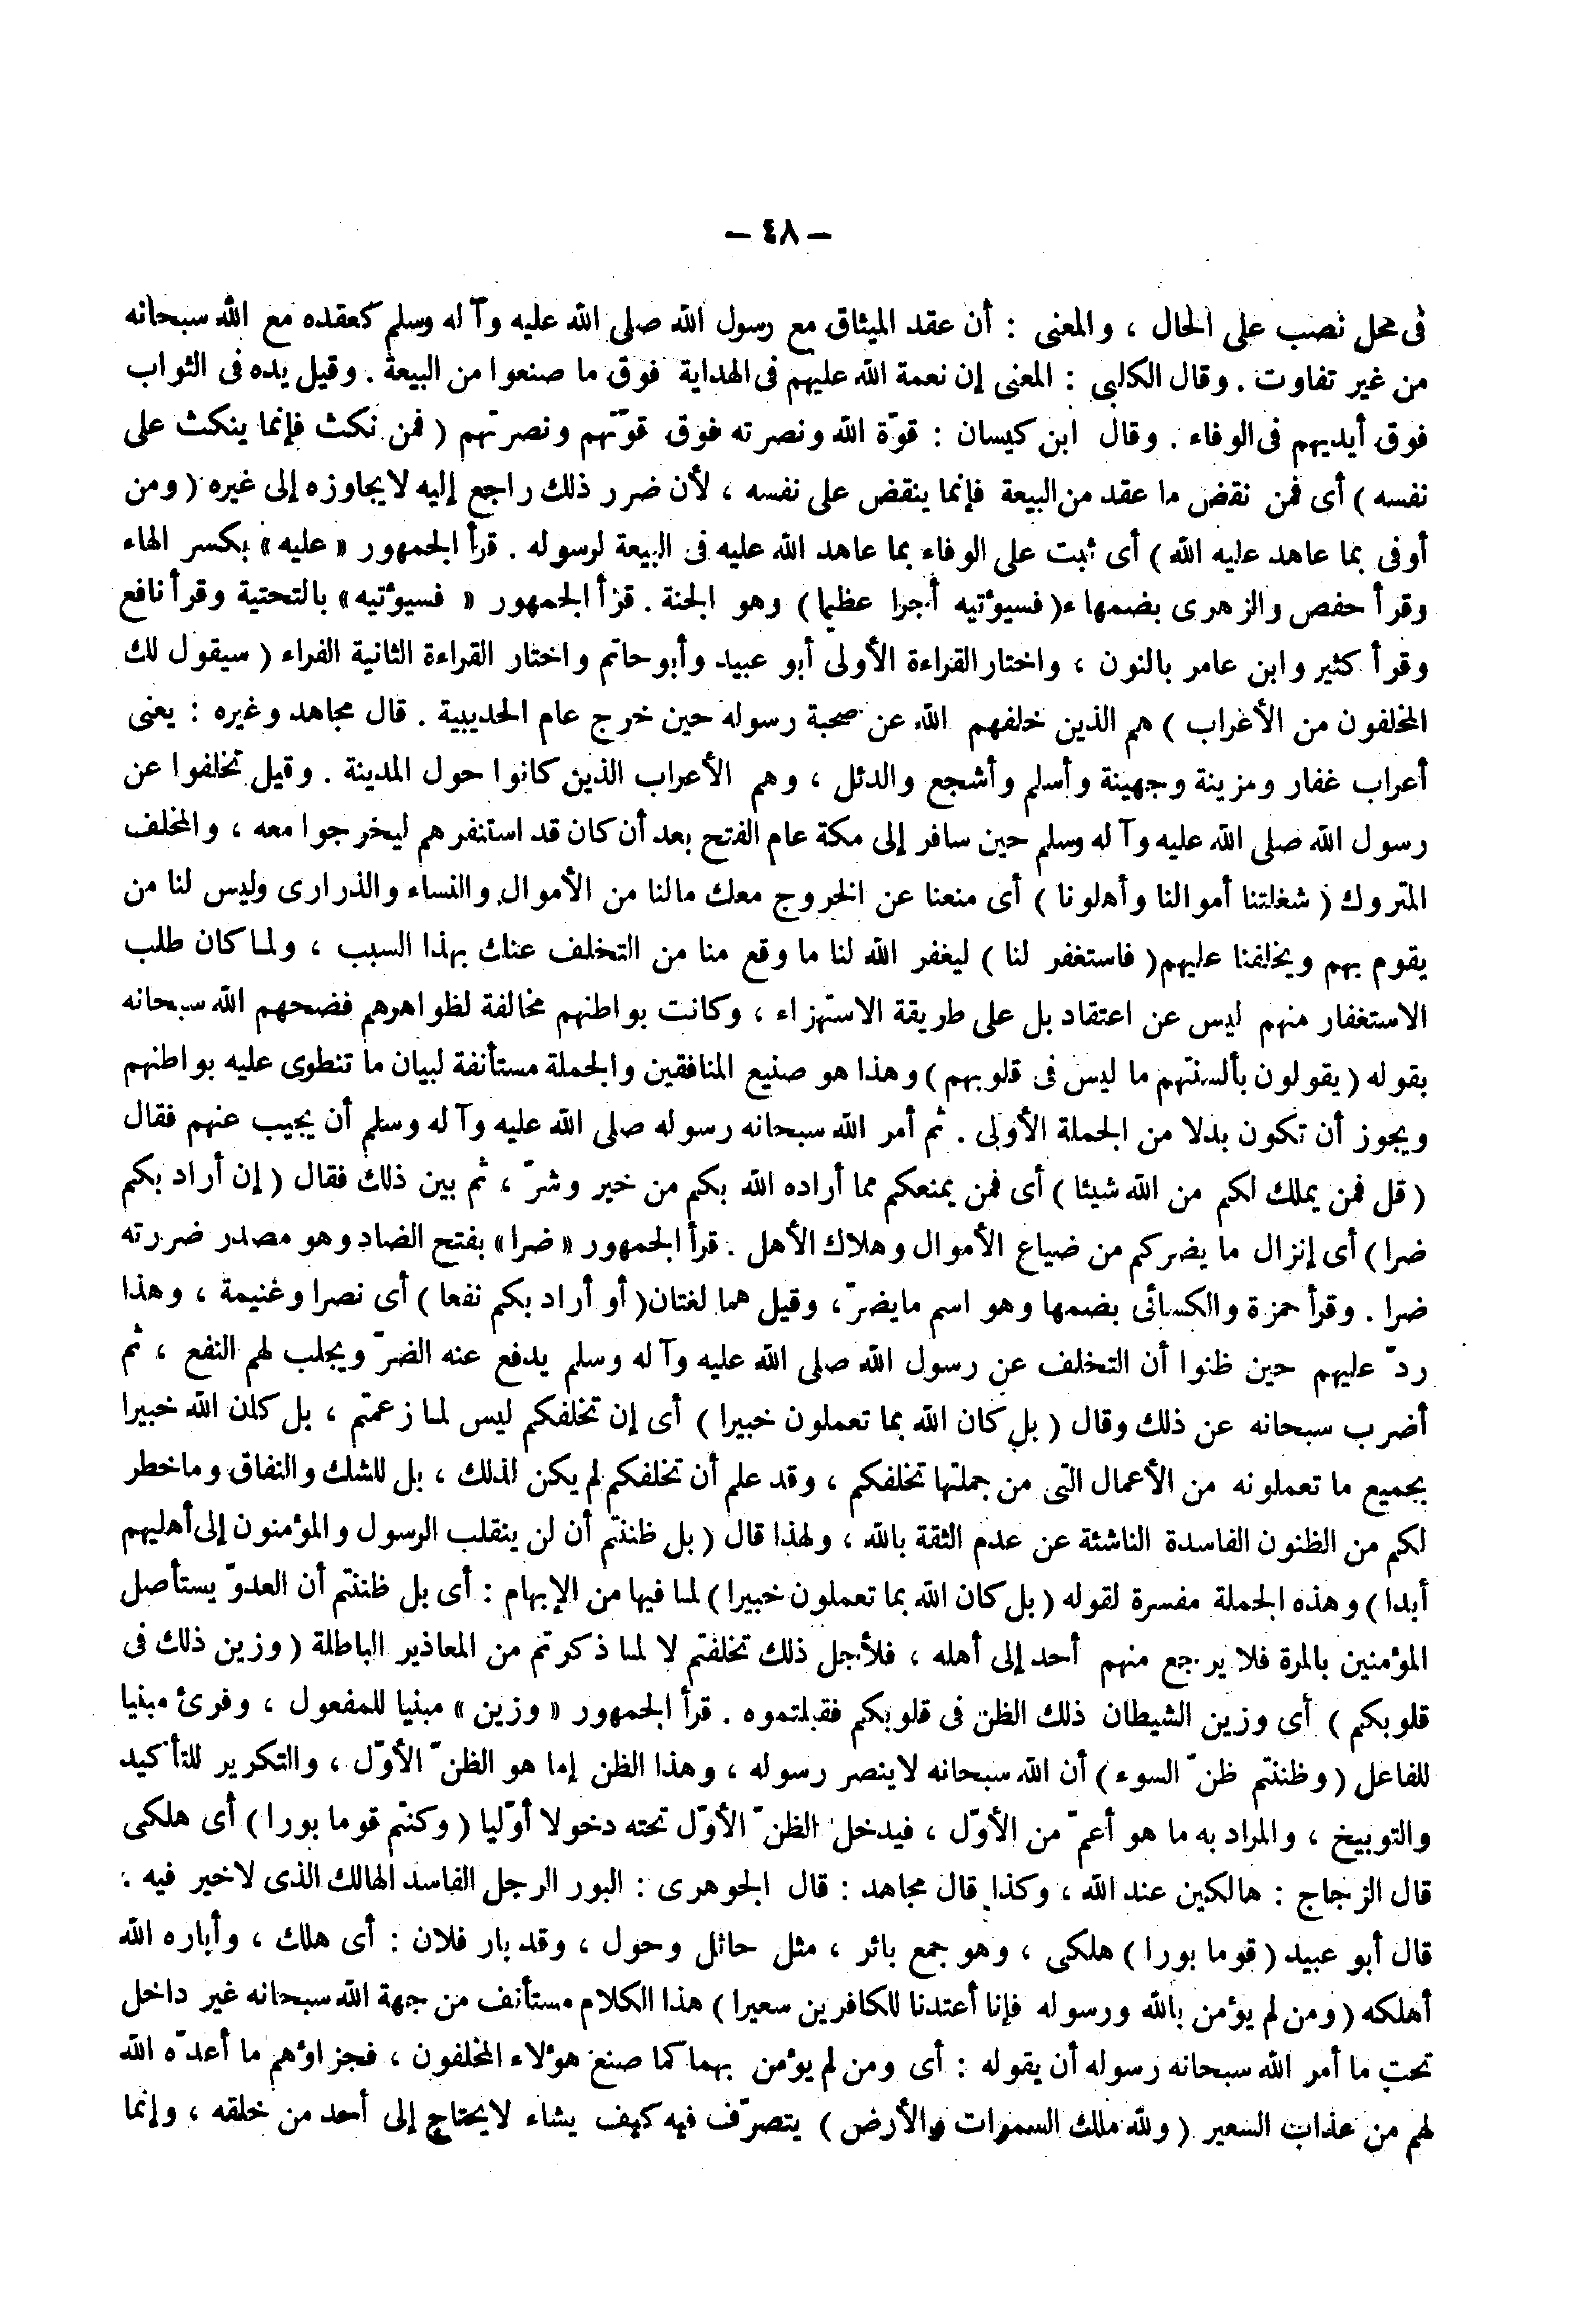 – ٤٨ –
فى محل نصب على الحال ، والمعنى : أن عقد الميثاق مع رسول الله صلى الله عليه وآ له وسلم كعقده مع الله سبحانه
من غير تفاوت . وقال الكلبى : المعنى إن نعمة الله عليهم فى الهداية فوق ما صنعوا من البيعة . وقيل يده فى الثواب
فوق أيديهم فى الوفاء . وقال ابن كيسان : قوّة الله ونصرته فوق قوّتهم ونصرتهم ( فمن نكث فإنما ينكث على
نفسه ) أى فمن نقض ما عقد من البيعة فإنما ينقض على نفسه ، لأن ضرر ذلك راجع إليه لايجاوزه إلى غيره ( ومن
أوفى بما عاهد عليه الله ) أى ثبت على الوفاء بما عاهد الله عليه فى البيعة لرسوله . قرأ الجمهور « عليه » بكسر الهاء
وقرأ حفص والزهرى بضمها ء( فسيؤتيه أجرا عظيما ) وهو الجنة . قرأ الجمهور « فسيؤتيه » بالتحتية وقرأ نافع
وقرأ كثير وابن عامر بالنون ، واختار القراءة الأولى أبو عبيد وأبو حاتم واختار القراءة الثانية الفراء ( سيقول لك
المخلفون من الأعراب ) هم الذين خلفهم الله عن صحبة رسوله حين خرج عام الحديبية . قال مجاهد وغيره : يعنى
أعراب غفار ومزينة وجهينة وأسلم وأشجع والدئل ، وهم الأعراب الذين كانوا حول المدينة . وقيل تخلفوا عن
رسول الله صلى الله عليه وآ له وسلم حين سافر إلى مكة عام الفتح بعد أن كان قد استنفرهم ليخرجوا معه ، والمخلف
المتروك ( شغلتنا أموالنا وأهلونا ) أى منعنا عن الخروج معك مالنا من الأموال والنساء والذرارى وليس لنا من
يقوم بهم ويخلفنا عليهم( فاستغفر لنا ) ليغفر الله لنا ما وقع منا من التخلف عنك بهذا السبب ، ولما كان طلب
الاستغفار منهم ليس عن اعتقاد بل على طريقة الاستهزاء ، وكانت بواطنهم مخالفة لظواهرهم فضحهم الله سبحانه
بقوله ( يقولون بألسنتهم ما ليس فى قلوبهم ) وهذا هو صنيع المنافقين والجملة مستأنفة لبيان ما تنطوى عليه بواطنهم
ويجوز أن تكون بدلا من الجملة الأولى . ثم أمر الله سبحانه رسوله صلى الله عليه وآ له وسلم أن يجيب عنهم فقال
( قل فمن يملك لكم من الله شيئا ) أى فمن يمنعكم مما أراده الله بكم من خير وشرّ ، ثم بين ذلك فقال ( إن أراد بكم
ضرا ) أى إنزال ما يضركم من ضياع الأموال وهلاك الأهل . قرأ الجمهور « ضرا » بفتح الضاد وهو مصدر ضررته
ضرا . وقرأ حمزة والكسائى بضمها وهو اسم مايضرّ ، وقيل هما لغتان( أو أراد بكم نفعا ) أى نصرا وغنيمة ، وهذا
ردّ عليهم حين ظنوا أن التخلف عن رسول الله صلى الله عليه وآ له وسلم يدفع عنه الضرّ ويجلب لهم النفع ، ثم
أضرب سبحانه عن ذلك وقال ( بل كان الله بما تعملون خبيرا ) أى إن تخلفكم ليس لما زعمتم ، بل كان الله خبيرا
بجميع ما تعملونه من الأعمال التى من جملتها تخلفكم ، وقد علم أن تخلفكم لم يكن لذلك ، بل للشك والنفاق وماخطر
لكم من الظنون الفاسدة الناشئة عن عدم الثقة بالله ، ولهذا قال ( بل ظننتم أن لن ينقلب الرسول والمؤمنون إلى أهليهم
أبدا ) وهذه الجملة مفسرة لقوله ( بل كان الله بما تعملون خبيرا ) لما فيها من الإبهام : أى بل ظننتم أن العدوّ يستأصل
المؤمنين بالمرة فلا يرجع منهم أحد إلى أهله ، فلأجل ذلك تخلفتم لا لما ذكرتم من المعاذير الباطلة ( وزين ذلك فى
قلوبكم ) أى وزين الشيطان ذلك الظن فى قلوبكم فقبلتموه . قرأ الجمهور « وزين » مبنيا للمفعول ، وقرئ مبنيا
للفاعل ( وظننتم ظنّ السوء ) أن الله سبحانه لاينصر رسوله ، وهذا الظن إما هو الظنّ الأوّل ، والتكرير للتأكيد
والتوبيخ ، والمراد به ما هو أعمّ من الأوّل ، فيدخل الظنّ الأوّل تحته دخولا أوّليا ( وكنتم قوما بورا ) أى هلكى
قال الزجاج : هالكين عند الله ، وكذا قال مجاهد : قال الجوهرى : البور الرجل الفاسد الهالك الذى لاخير فيه :
قال أبو عبيد ( قوما بورا ) هلكى ، وهو جمع بائر ، مثل حائل وحول ، وقد بار فلان : أى هلك ، وأباره الله
أهلكه ( ومن لم يؤمن بالله ورسوله فإنا أعتدنا للكافرين سعيرا ) هذا الكلام مستأنف من جهة الله سبحانه غير داخل
تحت ما أمر الله سبحانه رسوله أن يقوله : أى ومن لم يؤمن بهما كما صنع هؤلاء المخلفون ، فجزاؤهم ما أعدّه الله
لهم من عذاب السعير ( ولله ملك السموات والأرض ) يتصرّف فيه كيف يشاء لايحتاج إلى أحد من خلقه ، وإنما